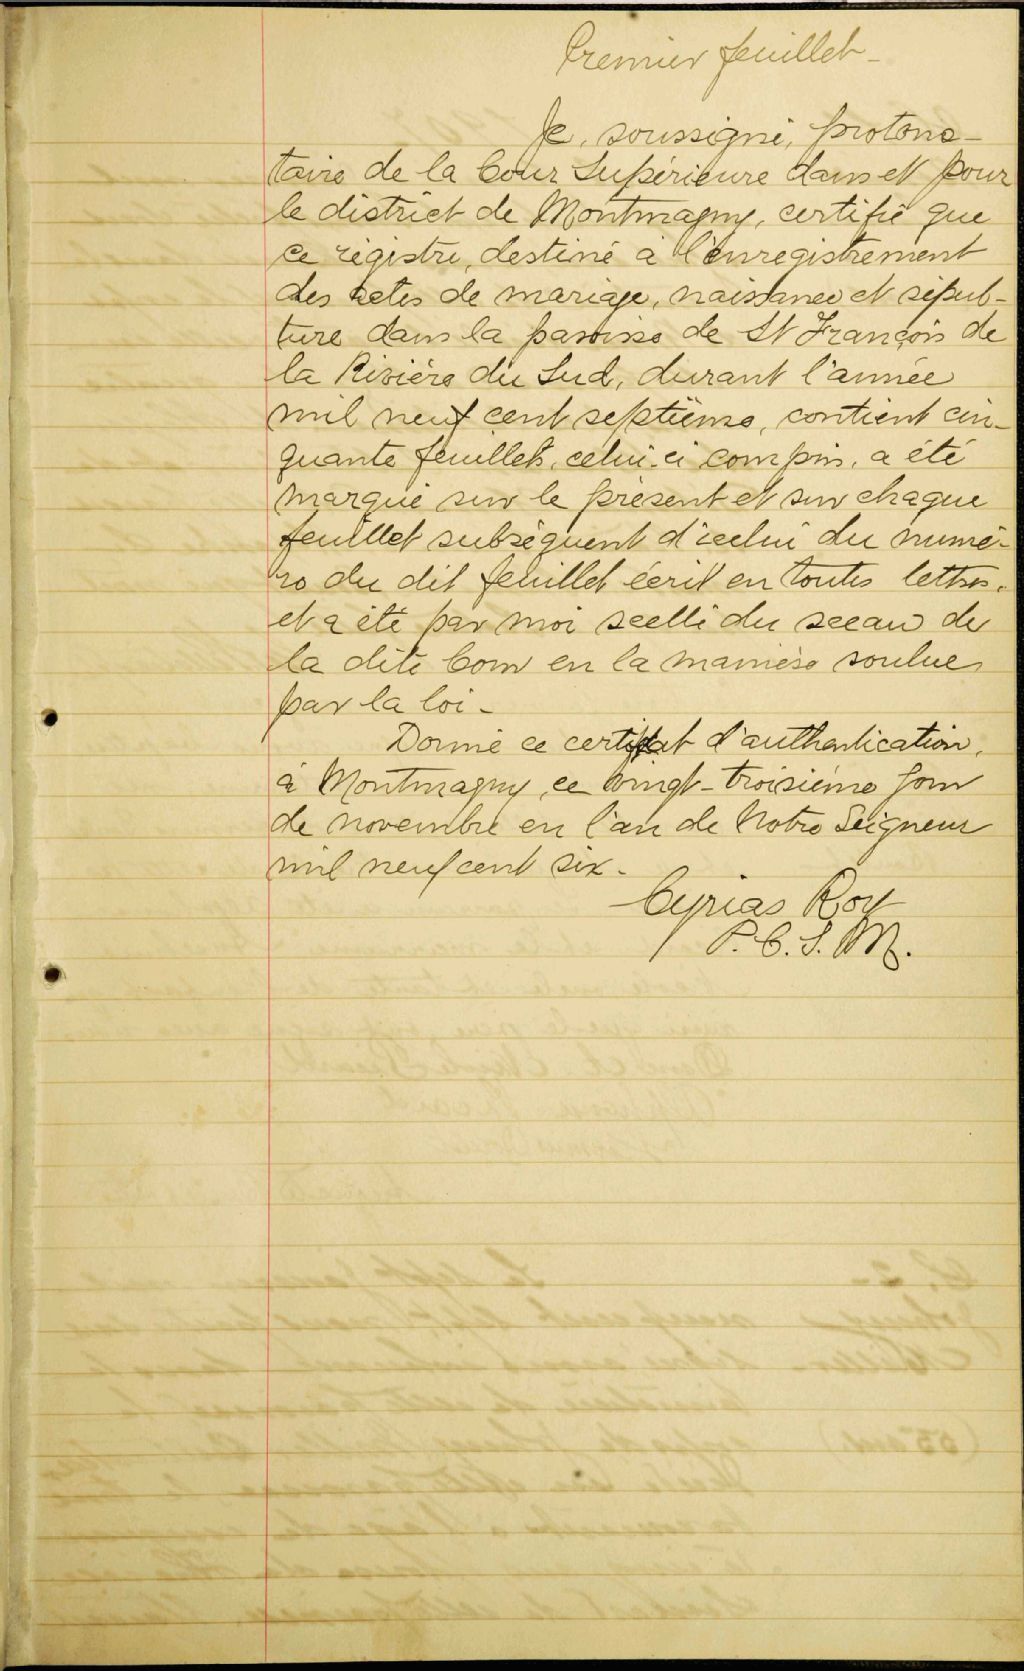 Premier feuillet -
Je, soussigné, protono-
taire de la Cour Supérieure dans et pour
le district de Montmagny, certifie que
ce régistre, destiné à l'enregistrement
des actes de mariage, naissance et sépul-
ture dans la paroisse de St François de
la Rivière du Sud, durant l'année
mil neuf cent septième, contient cin-
quante feuillets, celui-ci compris, a été
marqué sur le présent et sur chaque
feuillet subséquent d'icelui du numé-
ro du dit feuillet écrit en toutes lettres.
et a été par moi scellé du sceau de
la dite Cour en la manière voulue
par la loi -
Donné ce certificat d'authentication,
à Montmagny, ce vingt-troisième jour
de novembre en l'an de Notre Seigneur
mil neuf cent six -
Cyrias Roy
P. C. S. M.